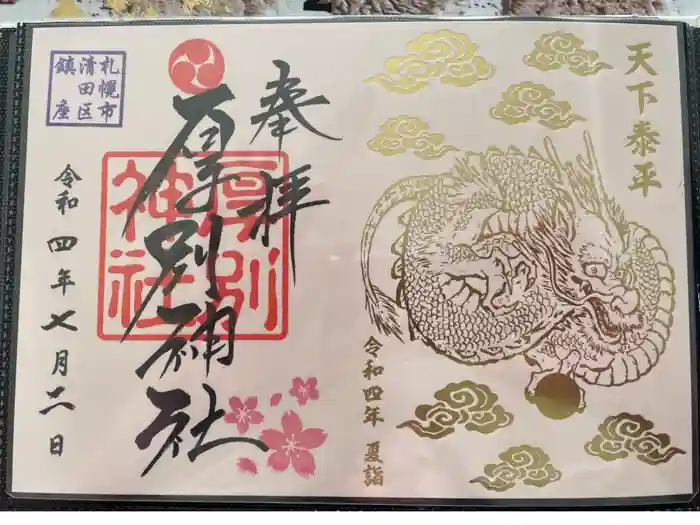 天下泰平
令和四年 夏詣
奉拝
厚別神社
厚別
神社
札幌市
清田区
鎮座
令和四年七月二日